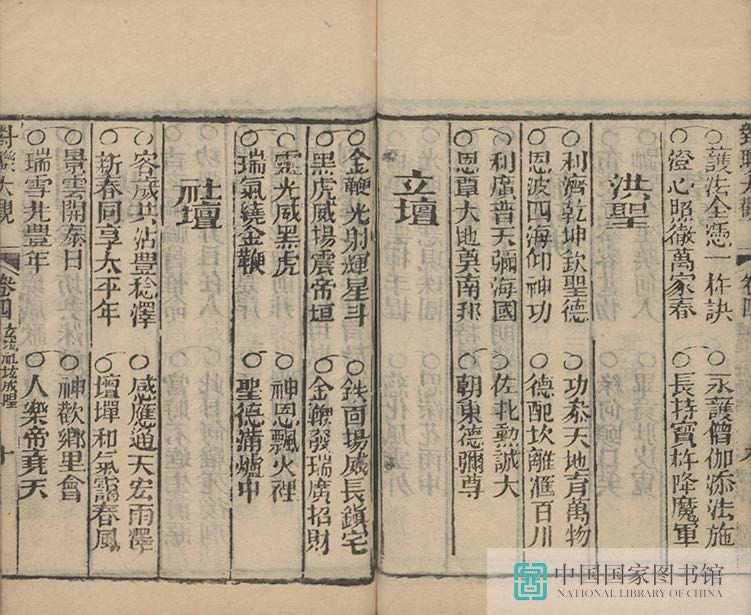 護法全憑一杵訣
永護僧伽添法施
澄心照徹萬家春
長持寶杵降魔軍
洪聖
利濟乾坤欽聖德
功叅天地育萬物
恩波四海仰神功
德配坎離滙百川
利廣普天彌海國
佐北動誠大
恩覃大地奠南邦
朝東德彌尊
立壇
金鞭光射輝星斗
鉄面揚威長鎮宅
黑虎威揚震帝垣
金鞭發瑞廣招財
靈光威黑虎
神恩飄火裡
瑞氣繞金鞭
聖德滿爐中
社壇
容歲共沾豊稔澤
感應通天宏雨澤
新春同享太平年
壇墠和氣靄春風
景雲開泰日
神歡鄉里會
瑞雪兆豊年
人樂帝堯天
對聯大觀
卷四
十
中国国家图书馆
NATIONAL LIBRARY OF CHINA